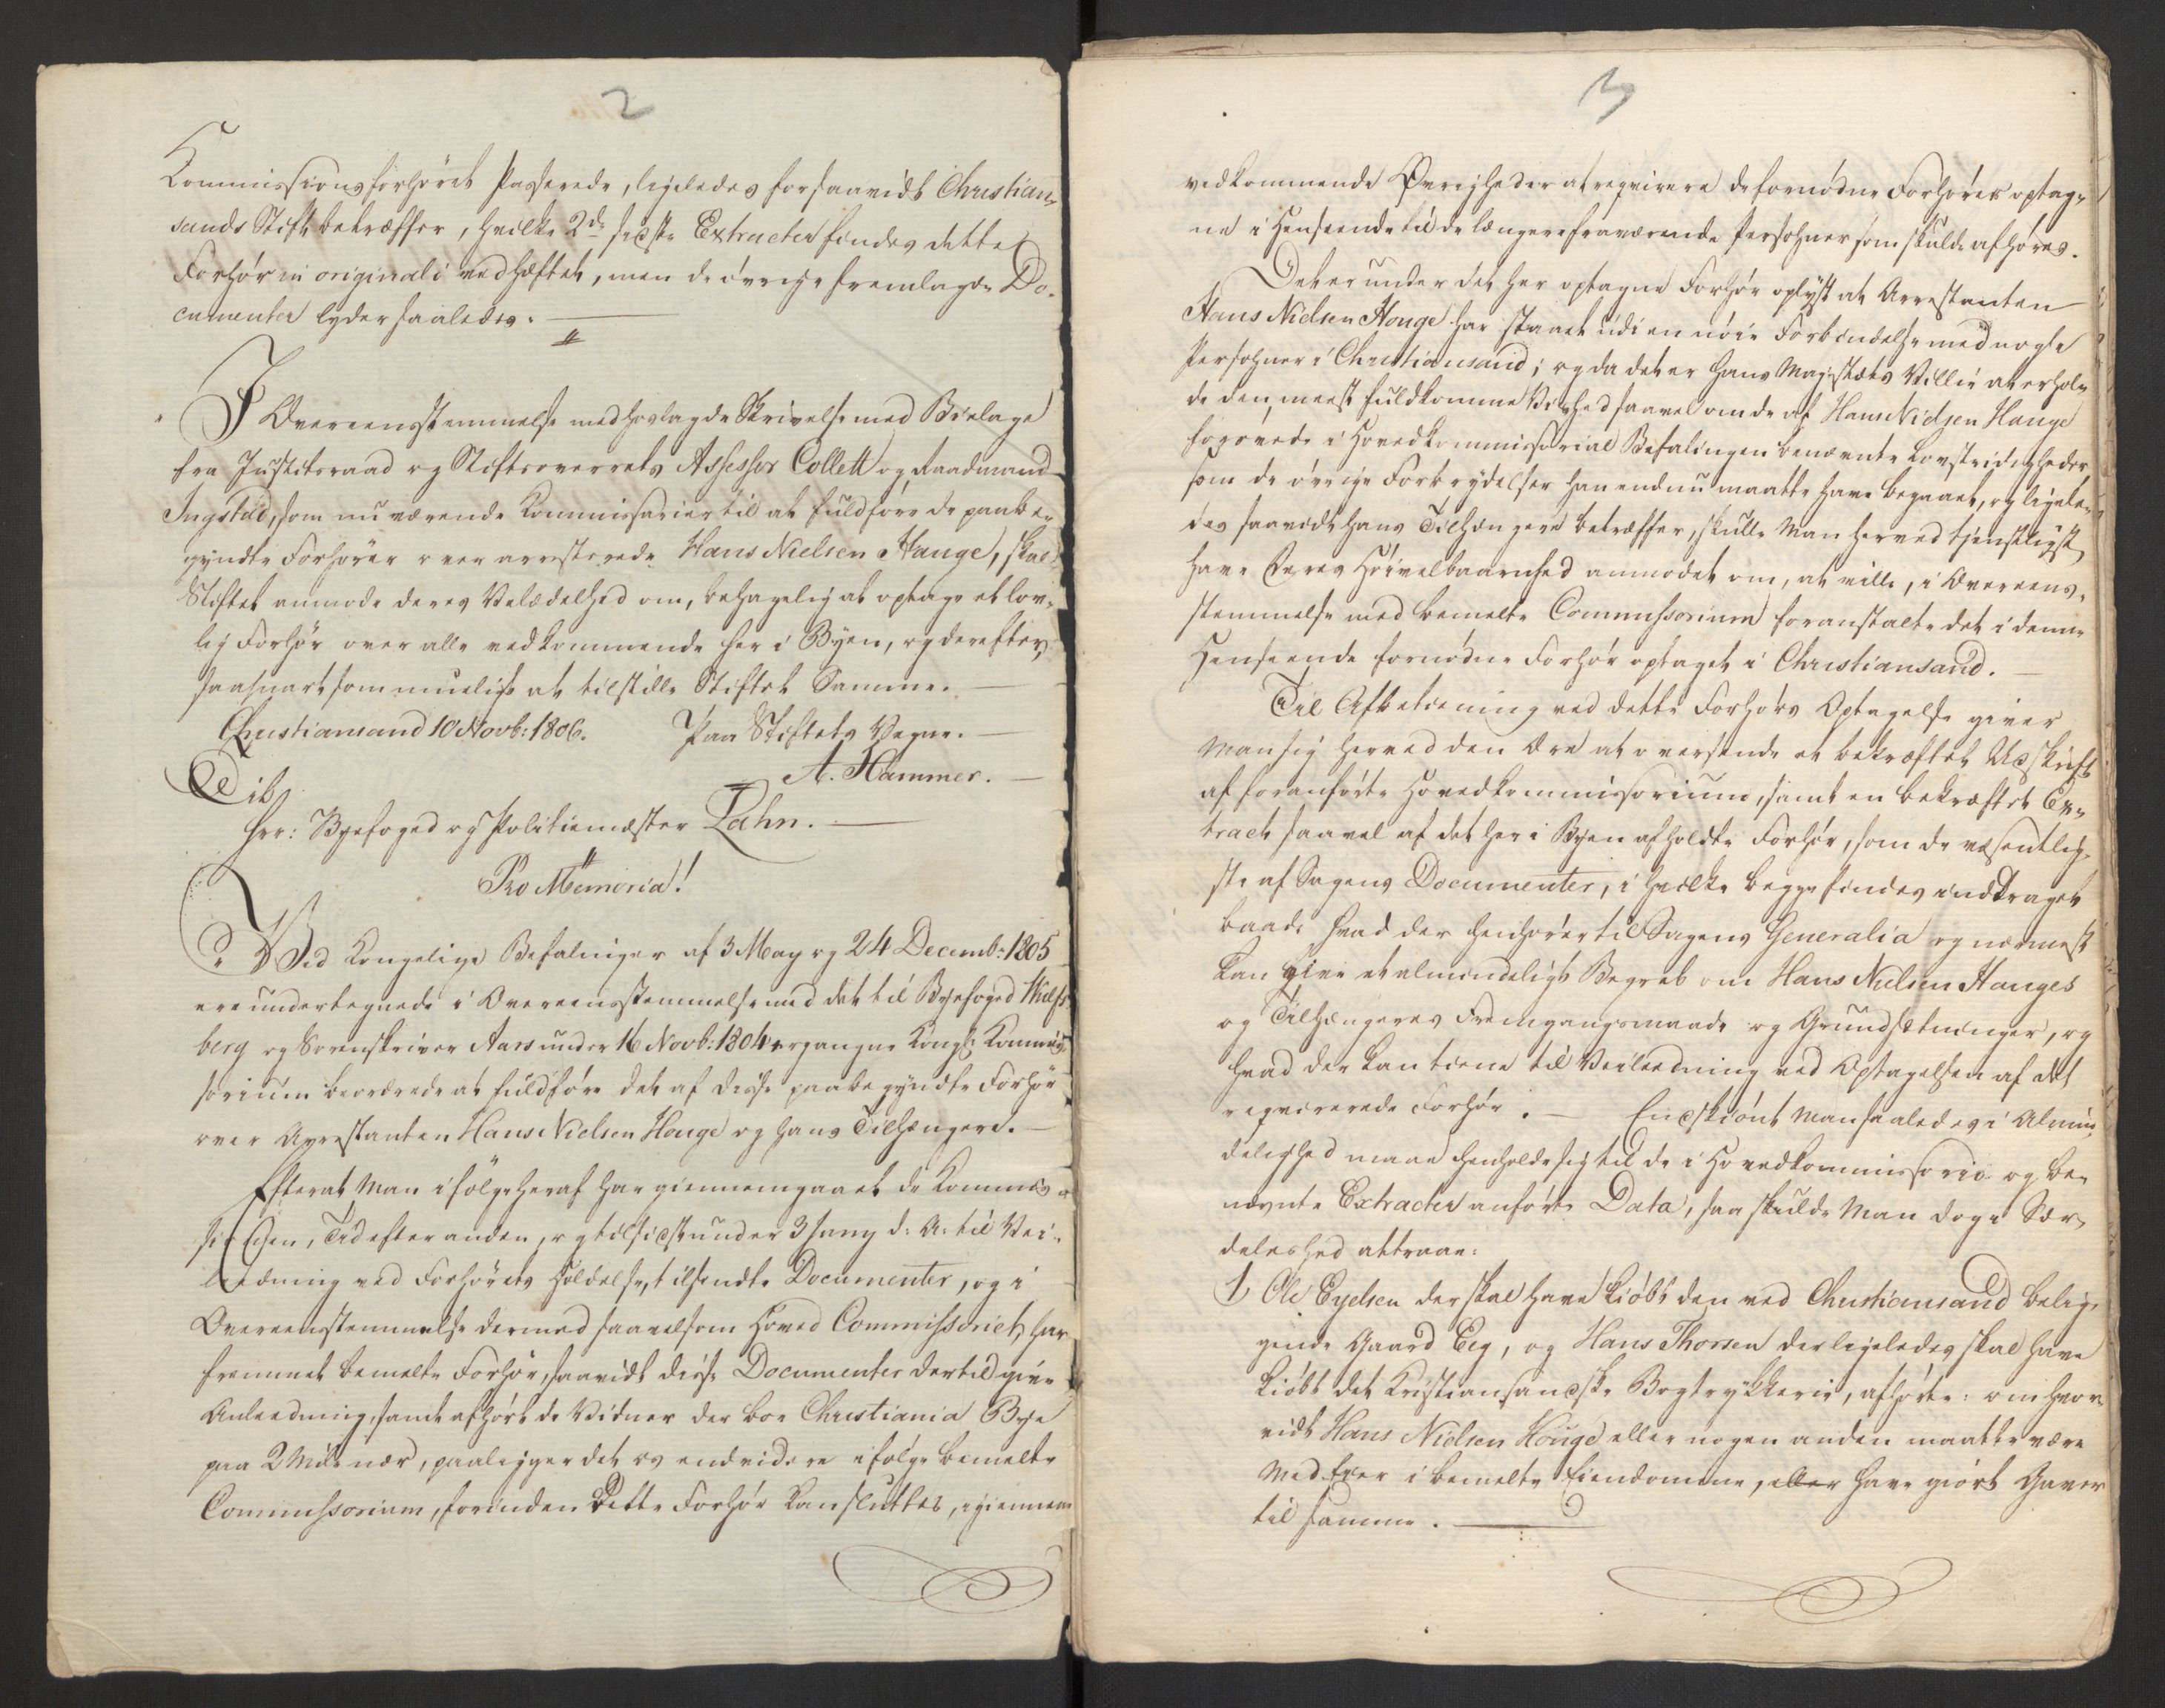 2
Kommissionsforhöret passerede, ligeledes forsaavidt Christian-
sands Stift betræffer, hvilke 2de sidste Extracter findes dette
Forhör in originali vedhæftet, men de övrige fremlagde Do-
cumenter lyder saaledes.
I Overeensstemmelse med hoslagde Skrivelse med Bielage
fra Justitsraad og Stiftsoverrets Assessor Collett og Raadmand
Ingstad, som nu værende Kommissarier til at fuldföre de paabe-
gyndte Forhörer over arresterede Hans Nielsen Hauge, skal
Stiftet anmode deres Velædelhed om, behagelig at optage et lov-
lig Forhör over alle vedkommende her i Byen, og derefter
saasnart som mueligt at tilstille Stiftet Samme.
Christiansand 10 Novb: 1806. Paa Stiftets Vegne.
A. Hammer.
Til
Hrr: Byefoged og Politiemester Lahn.
Pro Memoria!
Ved Kongelige Befalinger af 3 May og 24 Decemb: 1805
ere undertegnede i Overeensstemmelse med det til Byefoged Wulfs-
berg og Sorenskriver Aars under 16 Novb: 1804 ergangne Kongl: Kommis-
sorium beordrede at fuldföre det af disse paabegyndte Forhör
over Arrestanten Hans Nielsen Hauge og hans Tilhængere.
Efterat Man i fölge heraf har giennemgaaet de Kommis-
sionen, Tid efter anden, og tilsidst under 3 Juny d: A: til Vei-
ledning ved Forhörets Holdelse, tilsendte Documenter, og i
Overeensstemmelse dermed saavelsom Hoved Commissoriet, har
fremmet bemelte Forhör, saavidt disse Documenter dertil give
Anledning, samt afhört de Vidner der boe Christiania Bye
paa 2 Mile nær, paaligger det os endvidere ifölge bemelte
Commissorium, forinden dette Forhör kan sluttes, igiennem
3
vedkommende Övrigheder at reqvirere de fornödne Forhörer optag-
ne i Henseende til de længere fraværende Personer som skulde afhöres.
Det er under det her optagne Forhör oplyst at Arrestanten
Hans Nielsen Hauge har staaet udi en nöie Forbindelse med nogle
Persohner i Christiansand; og da det er Hans Majestæts Villie at erhol-
de den meest fuldkomne Vished saavel om de af Hans Nielsen Hauge
begaaede i Hovedkommissorial Befalingen benævnte Lovstridigheder
som de övrige Forbrydelser han endnu maatte have begaaet, og ligele-
des saavidt hans Tilhængere betræffer, skulle Man herved tjenstligst
have Deres Höivelbaarenhed anmodet om, at ville, i Overeens-
stemmelse med bemelte Commissorium foranstalte det i denne
Henseende fornödne Forhör optaget i Christiansand.
Til Afbetiening ved dette Forhörs Optagelse giver
Man sig herved den Ære at oversende et bekræftet Udskrift
af foranförte Hovedkommissorium, samt en bekræftet Ex-
tract saavel af det her i Byen afholdte Forhör, som de væsentlig-
ste af Sagens Documenter, i hvilke begge findes inddraget
baade hvad der henhörer til Sagens Generalia og nærmest
kan give et almindeligt Begreb om Hans Nielsen Hauges
og Tilhængeres Fremgangsmaade og Grundsetninger, og
hvad der kan tiene til Veiledning ved Optagelsen af det
reqvirerede Forhör. Endskiönt Man saaledes i Almin-
delighed maae henholde sig til de i Hovedkommissorio og be-
nevnte Extracter anförte Data, saa skulde Man dog i Sær-
deleshed attraae:
1 Ole Eyelsen der skal have kiöbt den ved Christiansand belig-
gende Gaard Eeg, og Hans Thorsen der ligeledes skal have
kiöbt det Kristiansandske Bogtrykkerie, afhörte: om hvor-
vidt Hans Nielsen Hauge eller nogen anden maatte være
Med Eier i bemelte Eiendomme, eller have giort Gaver
til samme.